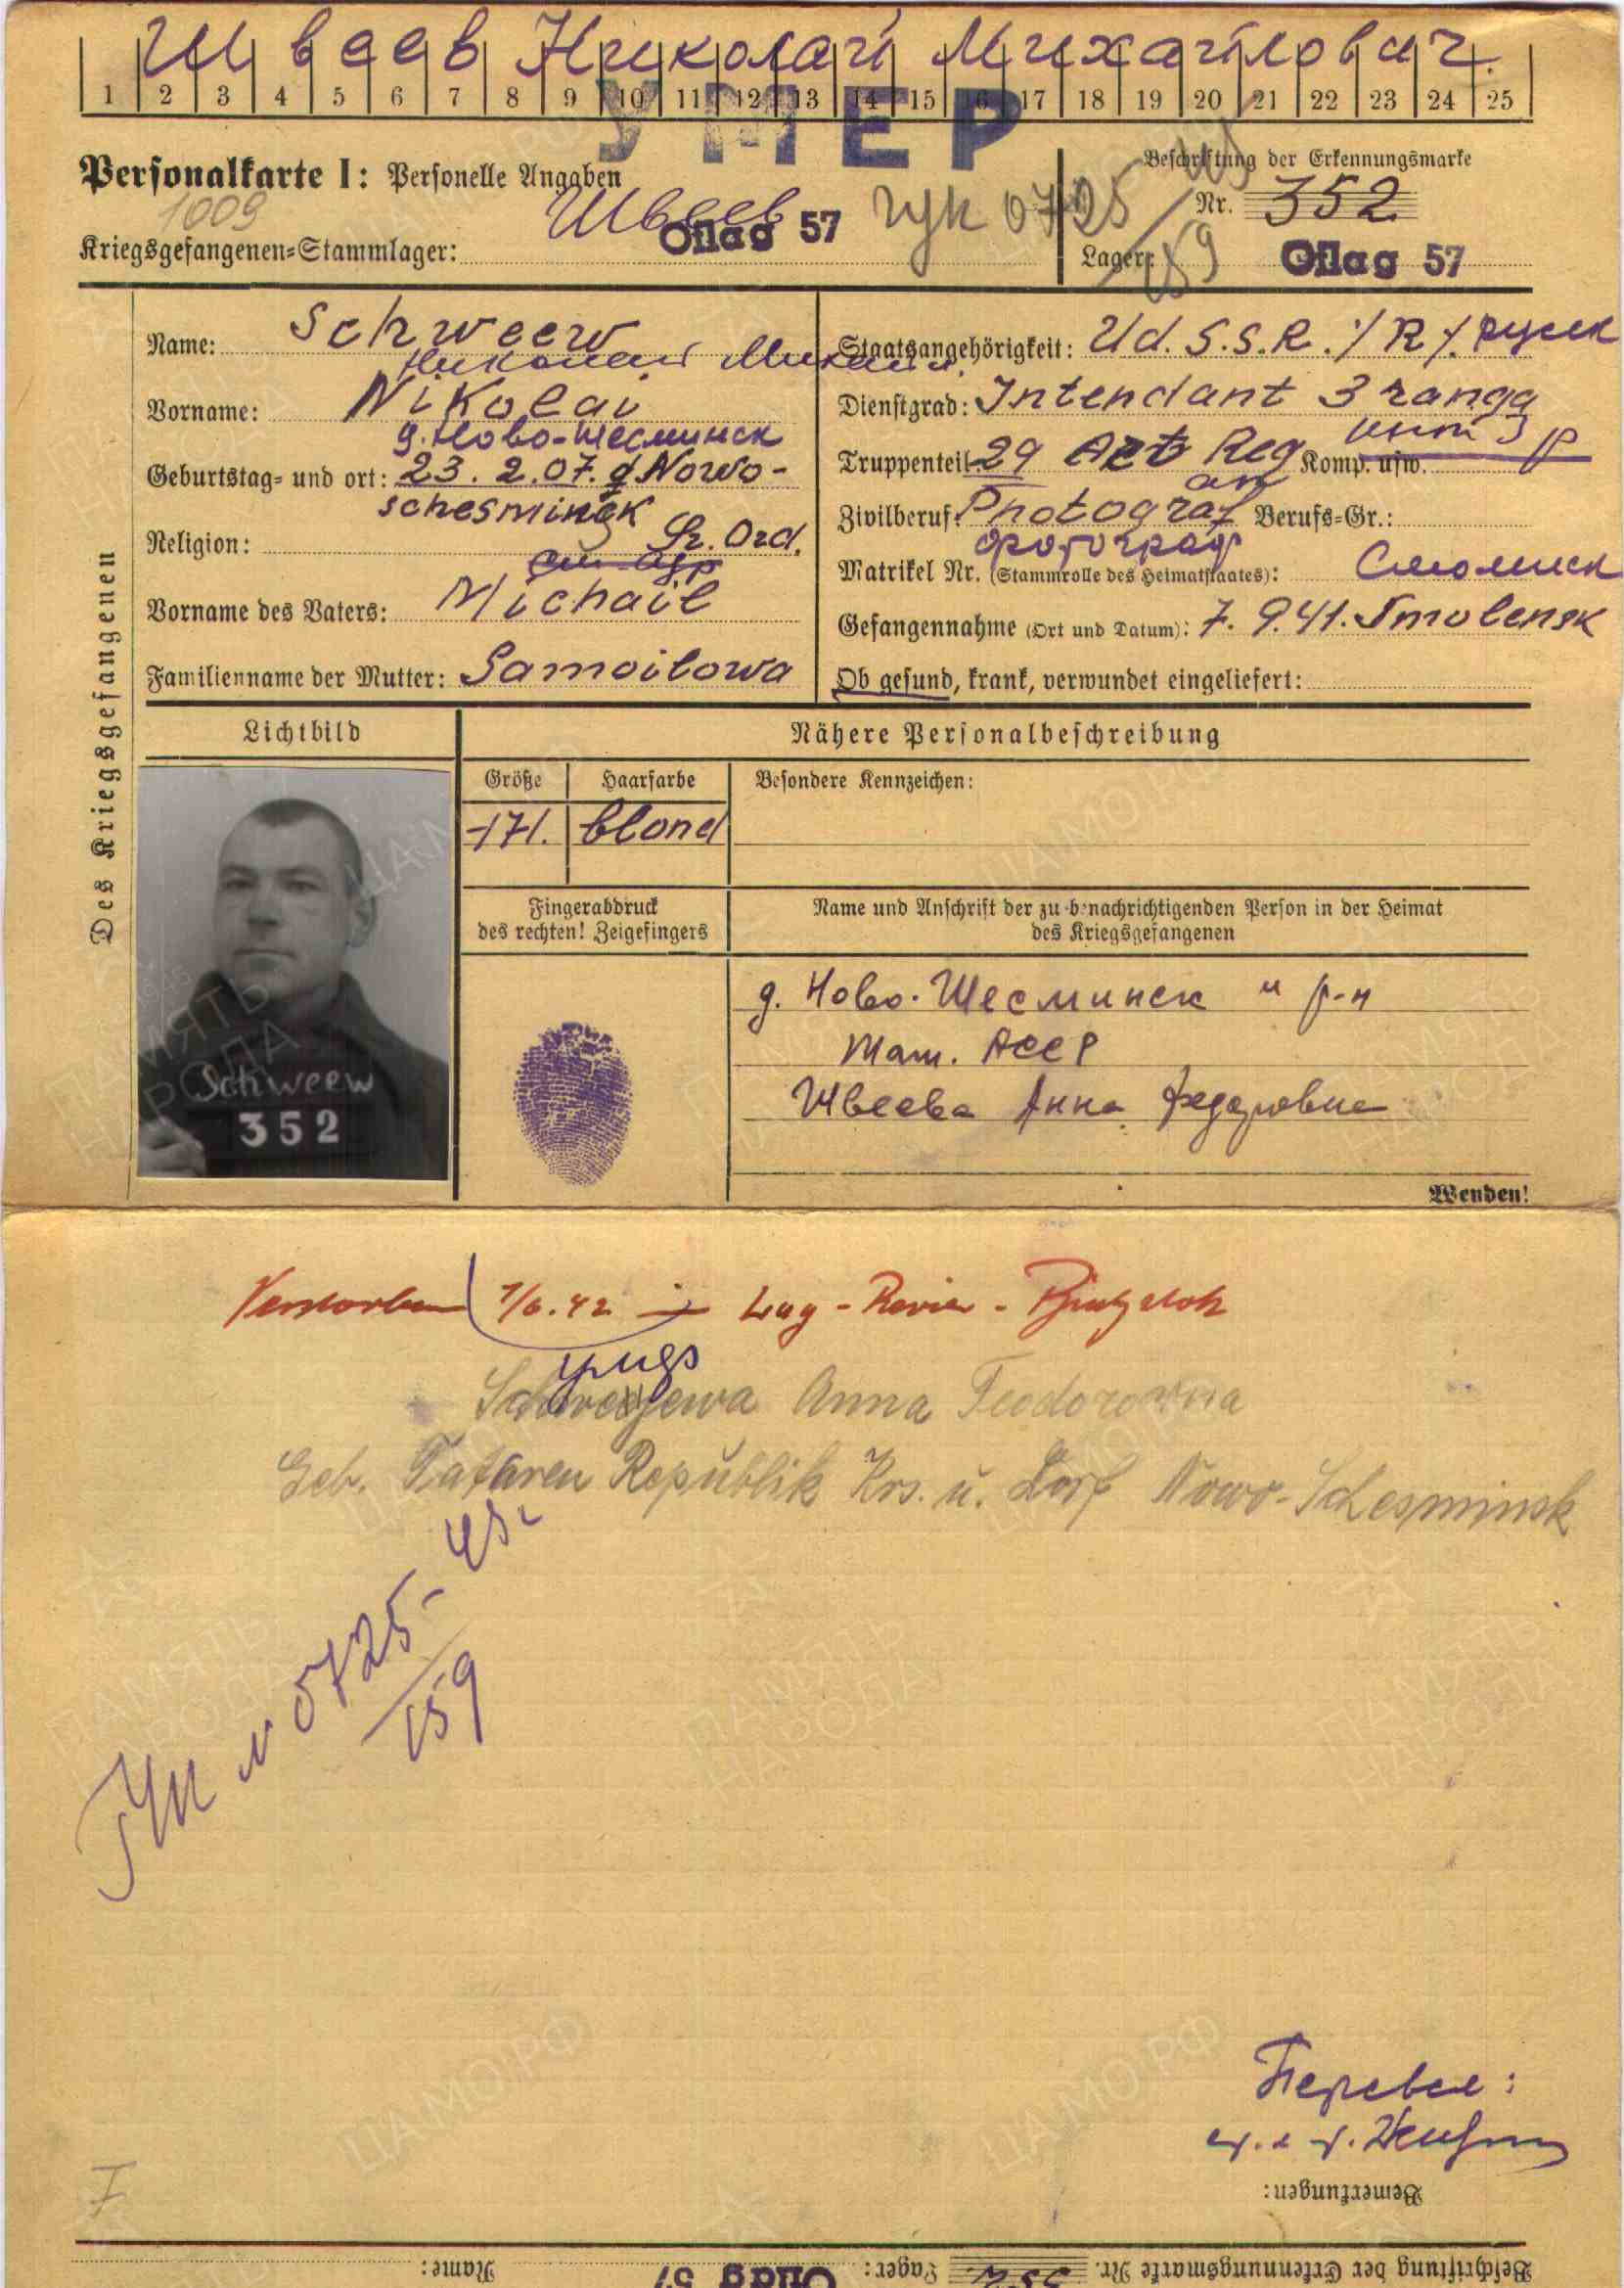 Швеев Николай Михайлович
1 2 3 4 5 6 7 8 9 10 11 12 13 14 15 16 17 18 19 20 21 22 23 24 25
УМЕР
Personalkarte I: Personelle Angaben
Beschriftung der Erkennungsmarke
1009
Швеев
Nr. 352
Kriegsgefangenen-Stammlager: Oflag 57
Lager: Oflag 57
Des Kriegsgefangenen
Name: Schweew
Николай
Vorname: Nikolai
д. Ново-Шесминск
Geburtstag- und ort: 23. 2. 07. d Nowo-
schesminsk
Religion: Gr. Ord.
Vorname des Vaters: Michail
Familienname der Mutter: Samoilowa
Staatsangehörigkeit: Ud. S. S. R. /R/. русск
Dienstgrad: Intendant 3 ranga
Truppenteil 29 Art Reg Komp. usw.
Zivilberuf: Photograf Berufs-Gr.:
фотограф
Matrikel Nr. (Stammrolle des Heimatstaates):
Gefangennahme (Ort und Datum): 7. 9. 41. Smolensk
Ob gesund, krank, verwundet eingeliefert:
Lichtbild
Nähere Personalbeschreibung
Größe Haarfarbe Besondere Kennzeichen:
171. blond
Fingerabdruck
des rechten! Zeigefingers
Name und Anschrift der zu benachrichtigenden Person in der Heimat
des Kriegsgefangenen
д. Ново-Шесминск и р-н
Тат. АССР
Швеева Анна Федоровна
Schweew
352
Wenden!
Verstorben 7/6. 42 Lag-Revier-
умер
Anna Feodorowna
Geb. Tataren Republik Krs. u. Dorf Nowo-Schesminsk
45г
159
Перевел:
I
Bemerkungen:
Beschriftung der Erkennungsmarke Nr. 352 Lager: Oflag 57 Name:
ПАМЯТЬ НАРОДА
ЦАМО.РФ